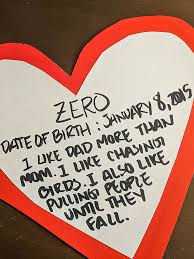 ZERO
DATE OF BIRTH: JANUARY 8, 2015
I LIKE DAD MORE THAN
MOM. I LIKE CHASING
BIRDS. I ALSO LIKE
PULLING PEOPLE
UNTIL THEY
FALL.